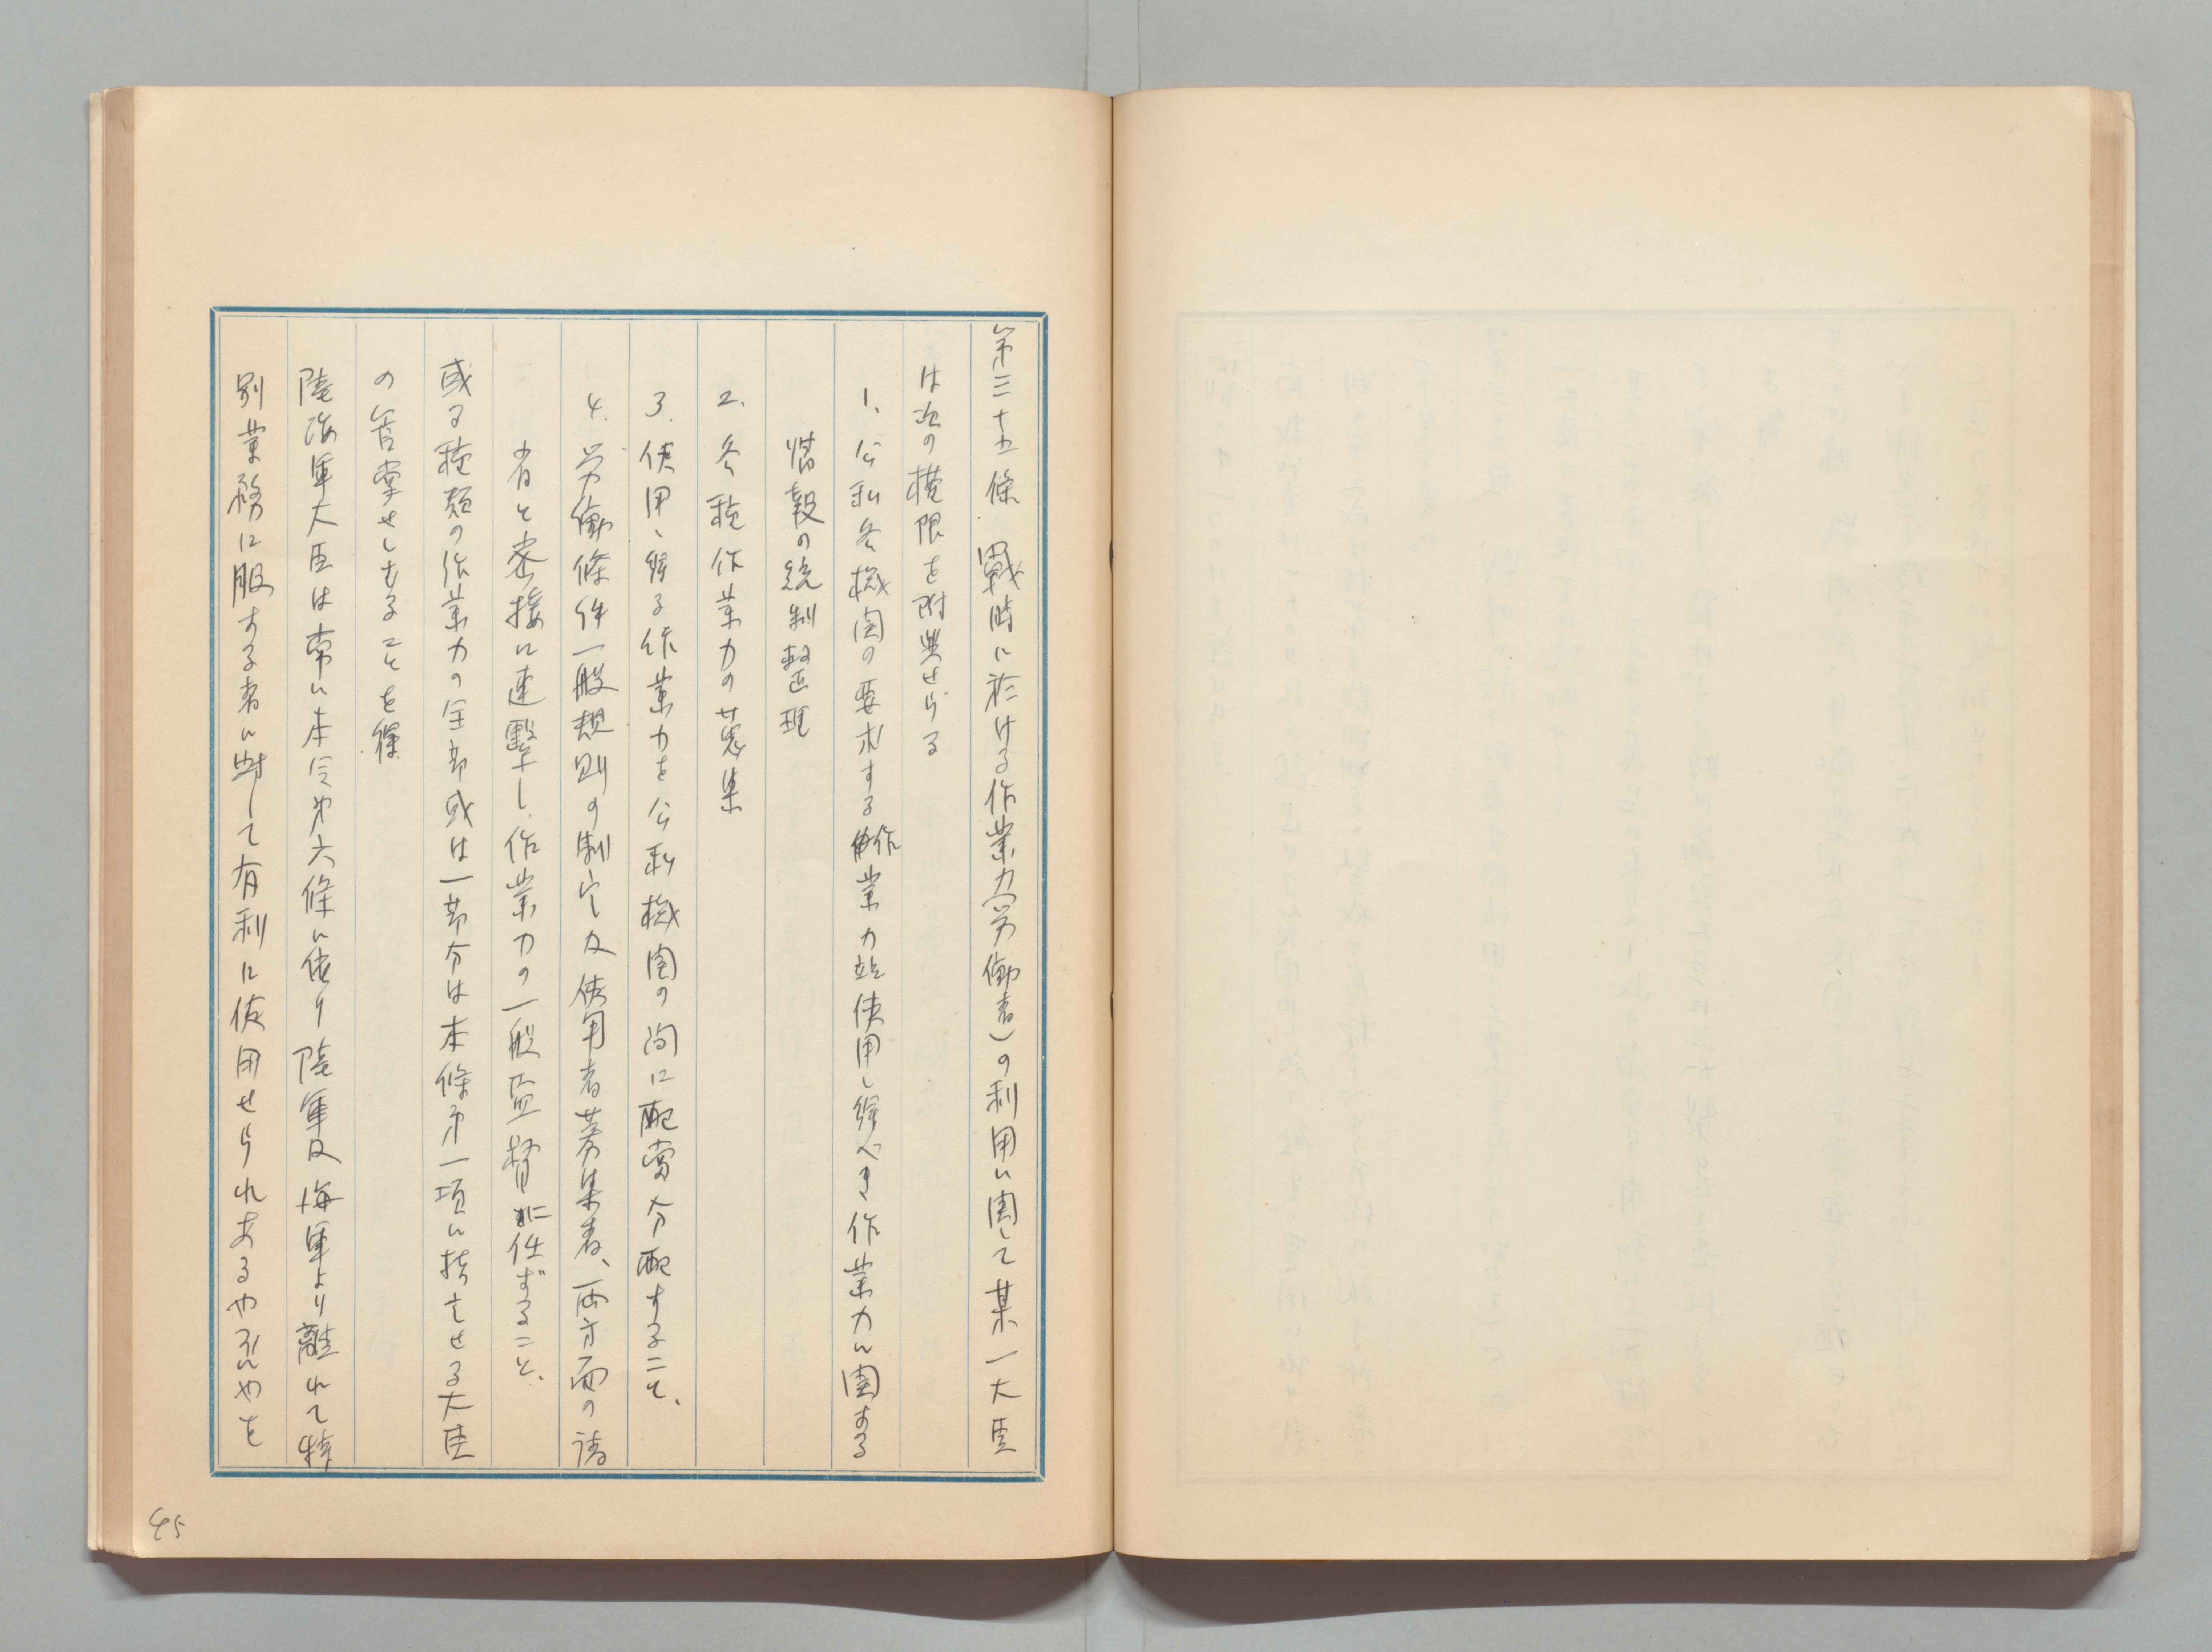 第三十五條　戰時に於ける作業力(労働者)の利用に関して某一大臣
は次の權限を附與せらる
1、公私各機関の要求する作業力並使用し得べき作業力に関する
情報の統制整理
2、各種作業力の募集
3、使用し得る作業力を公私機関の间に配當分配すること、
4、労働條件一般規則の制定及使用者募集者、両方面の諸
者と密接に連繋し作業力の一般監督に任ずること、
或る種類の作業力の全部或は一部分は本條第一項に指定せる大臣
の管掌せしむることを得
陸海軍大臣は常に本令第六條に依り陸軍及海軍より離れて特
別業務に服する者に対して有利に使用せられあるや否やを
45